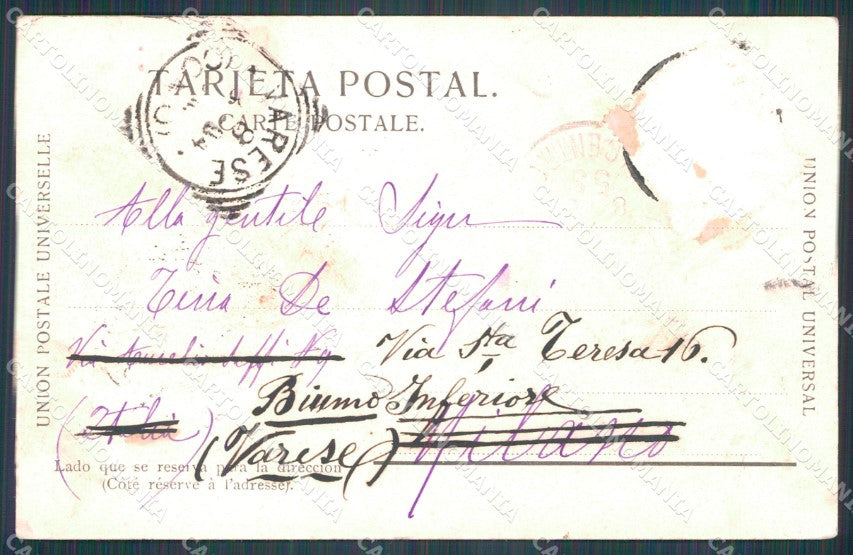 TARJETA POSTAL.
CARTE POSTALE.
UNION POSTALE UNIVERSELLE
UNION POSTAL UNIVERSAL
VARESE
Alla gentile Sigra
Tina De Stefani
Via Aurelio Saffi N 9
Via Sta Teresa 16.
Biumo Inferiore
(Italia)
Milano
(Varese)
Lado que se reserva para la dirección
(Côté réservé à l'adresse).
CARTOLINOMANIA